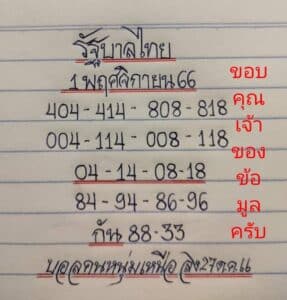 รัฐบาลไทย
1 พฤศจิกายน 66
404-414-808-818
004-114-008-118
04-14-08-18
84-94-86-96
กัน 88-33
บอลคนหนุ่มเหนือ
ขอบ
คุณ
เจ้า
ของ
ข้อ
มูล
ครับ